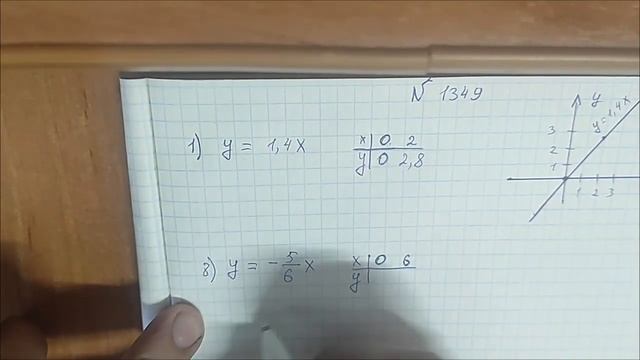 № 1349
1) y = 1,4x
x | 0 2
y | 0 2,8
y
y=1,4x
3
2
1
1 2 3
3) y = -5/6 x
x | 0 6
y |